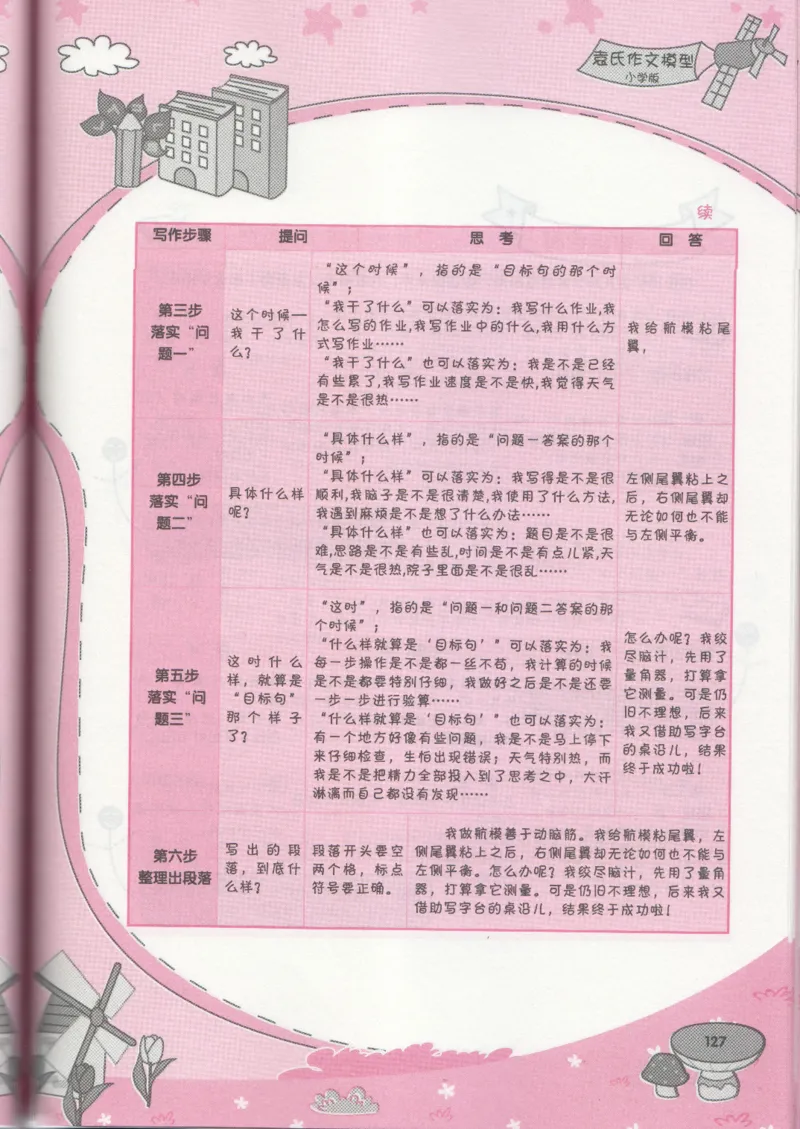 袁氏作文模型
小学版
续
写作步骤 提问 思考 回答
第三步
落实“问
题一”
这个时候—
我干了什
么？
“这个时候”，指的是“目标句的那个时
候”；
“我干了什么”可以落实为：我写什么作业,我
怎么写的作业,我写作业中的什么,我用什么方
式写作业……
“我干了什么”也可以落实为：我是不是已经
有些累了,我写作业速度是不是快,我觉得天气
是不是很热……
我给航模粘尾
翼，
第四步
落实“问
题二”
具体什么样
呢？
“具体什么样”，指的是“问题一答案的那个
时候”；
“具体什么样”可以落实为：我写得是不是很
顺利,我脑子是不是很清楚,我使用了什么方法,
我遇到麻烦是不是想了什么办法……
“具体什么样”也可以落实为：题目是不是很
难,思路是不是有些乱,时间是不是有点儿紧,天
气是不是很热,院子里面是不是很乱……
左侧尾翼粘上之
后，右侧尾翼却
无论如何也不能
与左侧平衡。
第五步
落实“问
题三”
这时什么
样，就算是
“目标句”
那个样子
了？
“这时”，指的是“问题一和问题二答案的那
个时候”；
“什么样就算是‘目标句’”可以落实为：我
每一步操作是不是都一丝不苟，我计算的时候
是不是都要特别仔细，我做好之后是不是还要
一步一步进行验算……
“什么样就算是‘目标句’”也可以落实为：
有一个地方好像有些问题，我是不是马上停下
来仔细检查，生怕出现错误；天气特别热，而
我是不是把精力全部投入到了思考之中，大汗
淋漓而自己都没有发现……
怎么办呢？我绞
尽脑汁，先用了
量角器，打算拿
它测量。可是仍
旧不理想，后来
我又借助写字台
的桌沿儿，结果
终于成功啦！
第六步
整理出段落
写出的段
落，到底什
么样？
段落开头要空
两个格，标点
符号要正确。
我做航模善于动脑筋。我给航模粘尾翼，左
侧尾翼粘上之后，右侧尾翼却无论如何也不能与
左侧平衡。怎么办呢？我绞尽脑汁，先用了量角
器，打算拿它测量。可是仍旧不理想，后来我又
借助写字台的桌沿儿，结果终于成功啦！
127